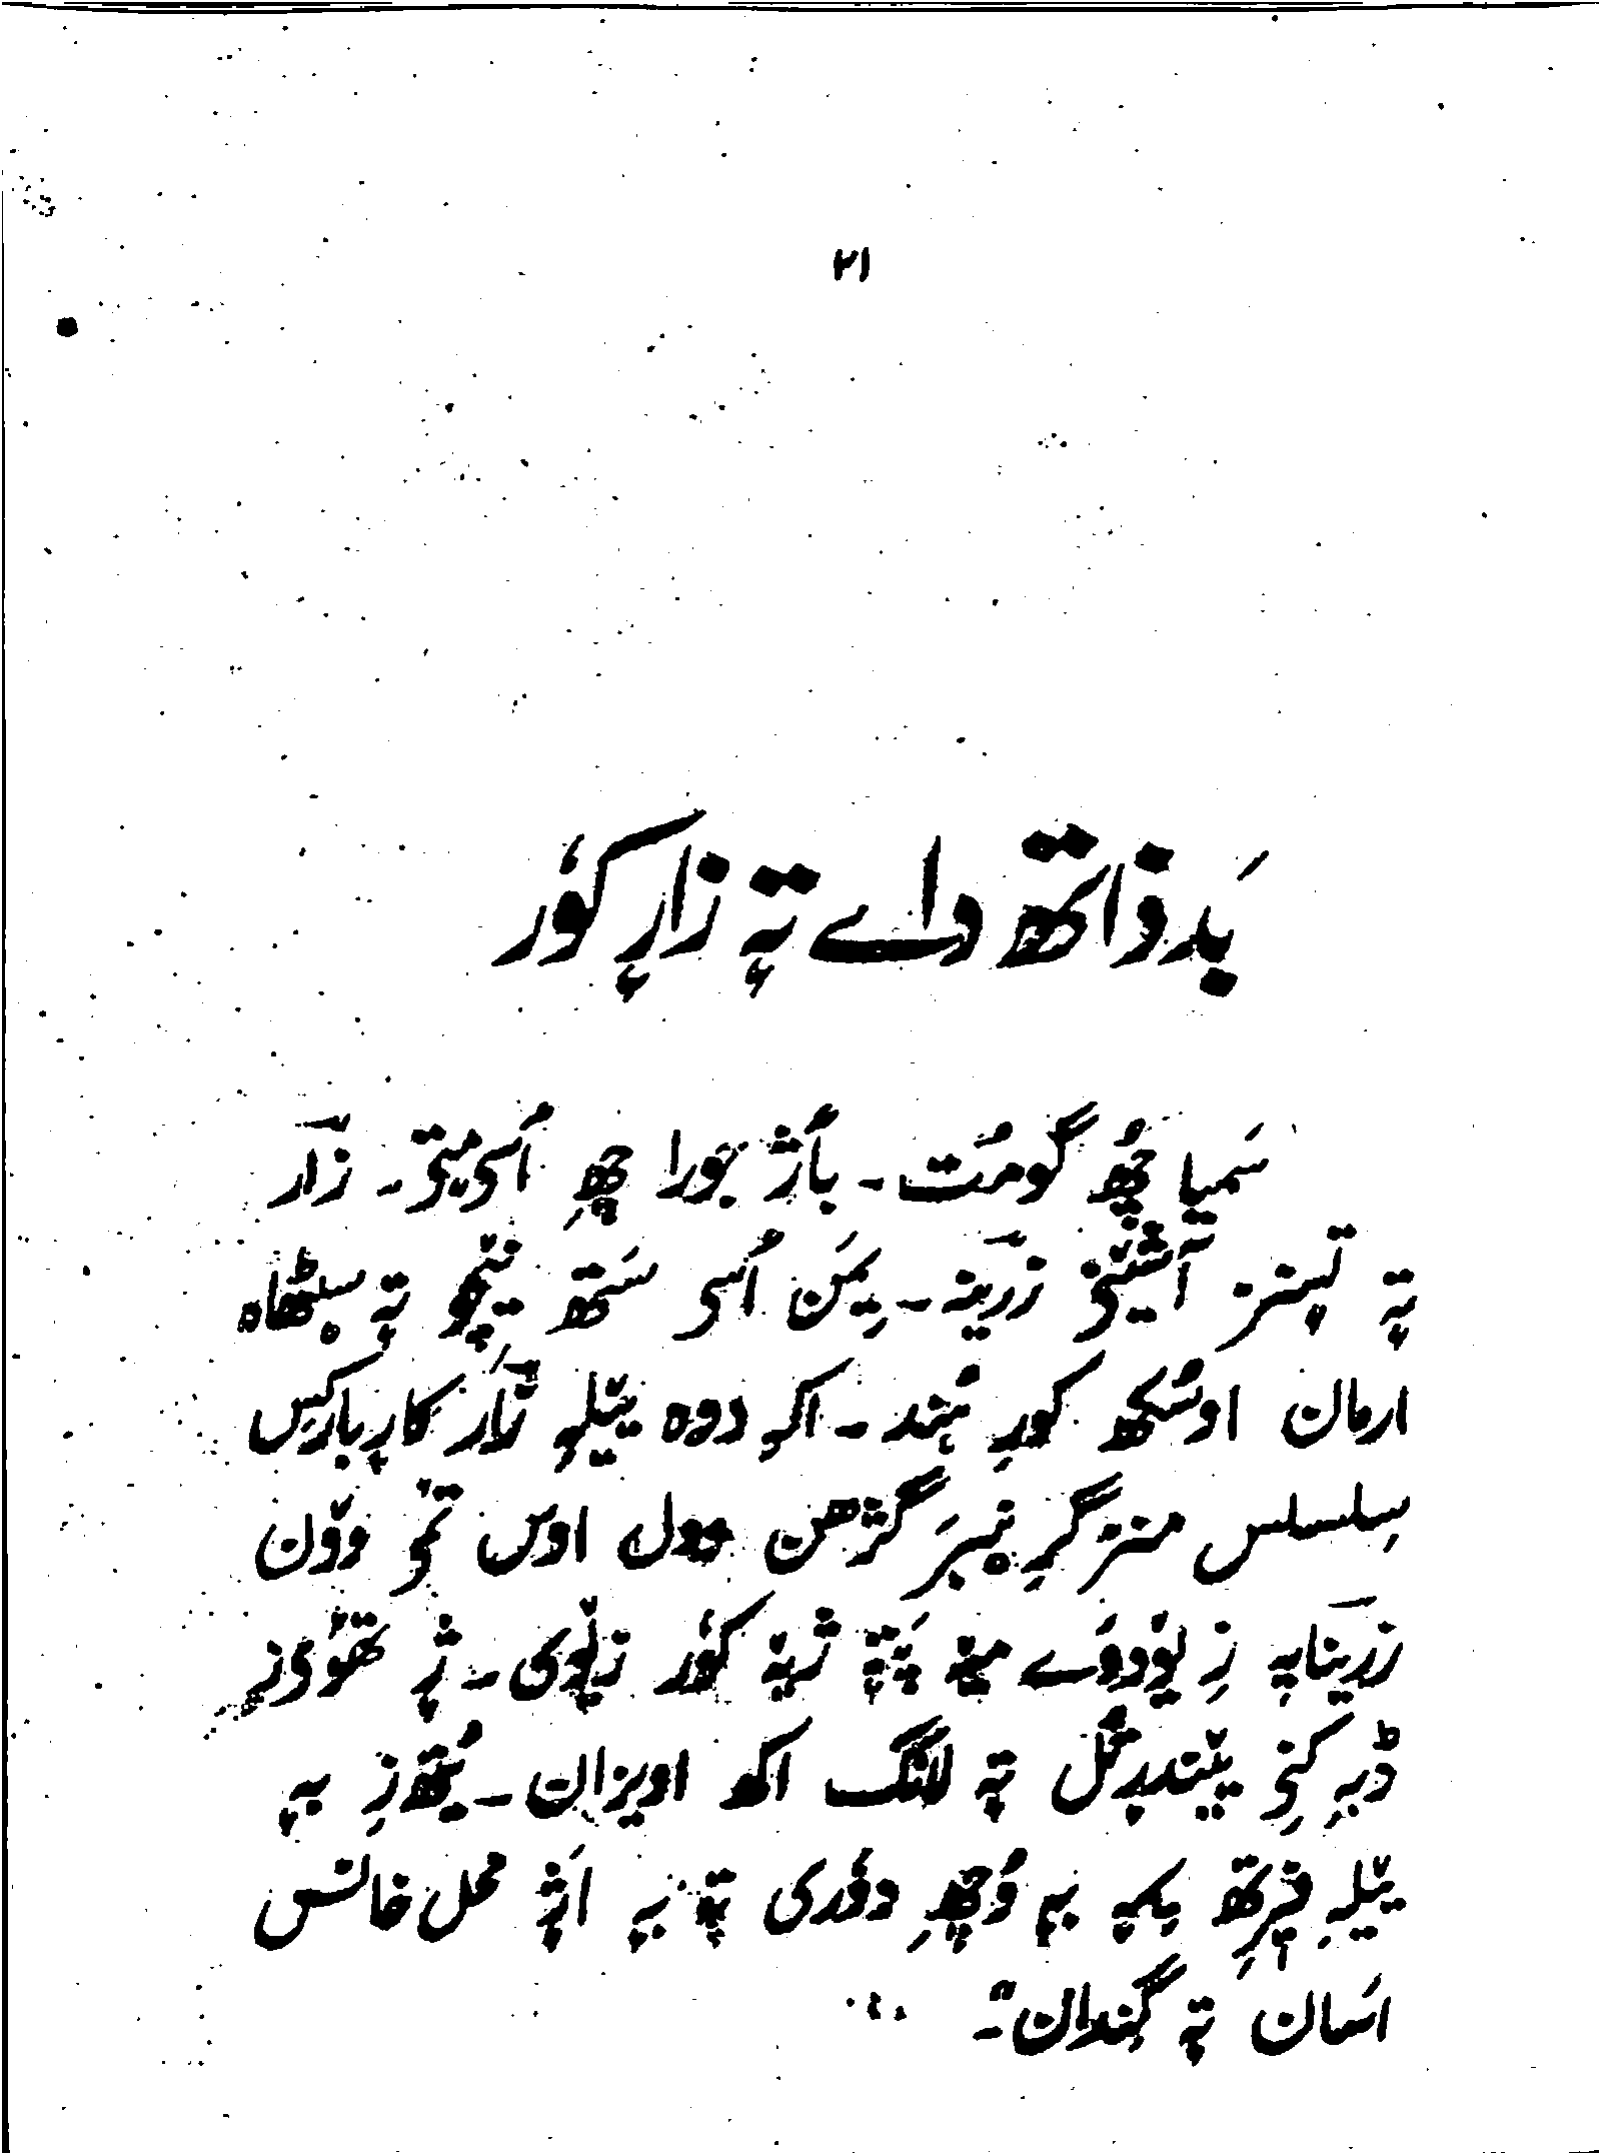 ۲۱
بَد ذاتھ داے تہٕ زارٕ کوٗر
سَمیا چھُ گومُت۔ بٲژ جورا چھِ ٲسۍ مٕتۍ۔ زٲر
تہٕ تسنز آشینۍ زرینہ۔ یِمَن ٲسۍ سَتھ نیچوۍ تہٕ سٮ۪ٹھاہ
ارمان اوسُکھ کورِ ہُند۔ اکہِ دوہ یٮ۪لہِ زٲر کارٕبارکِس
سِلسلس منز گرِ نیبَر گژھن وول اوس تٔمۍ ووٚن
زرینایہِ زِ یوٚدوَے میٚہ پَتہٕ ژیہٕ کوٗر زیوی۔ ژٕ تھوۍزِ
ڈبہِ کِنۍ پٮ۪ندپُل تہٕ لانگ اکھ اویزان۔ یُتھ زِ بہٕ
یٮ۪لہِ فیٖرِتھ یِمہٕ بہٕ وُچھِ دوٗری تہٕ بہٕ اژٕ محل خانس
اسَان تہٕ گِندان"۔